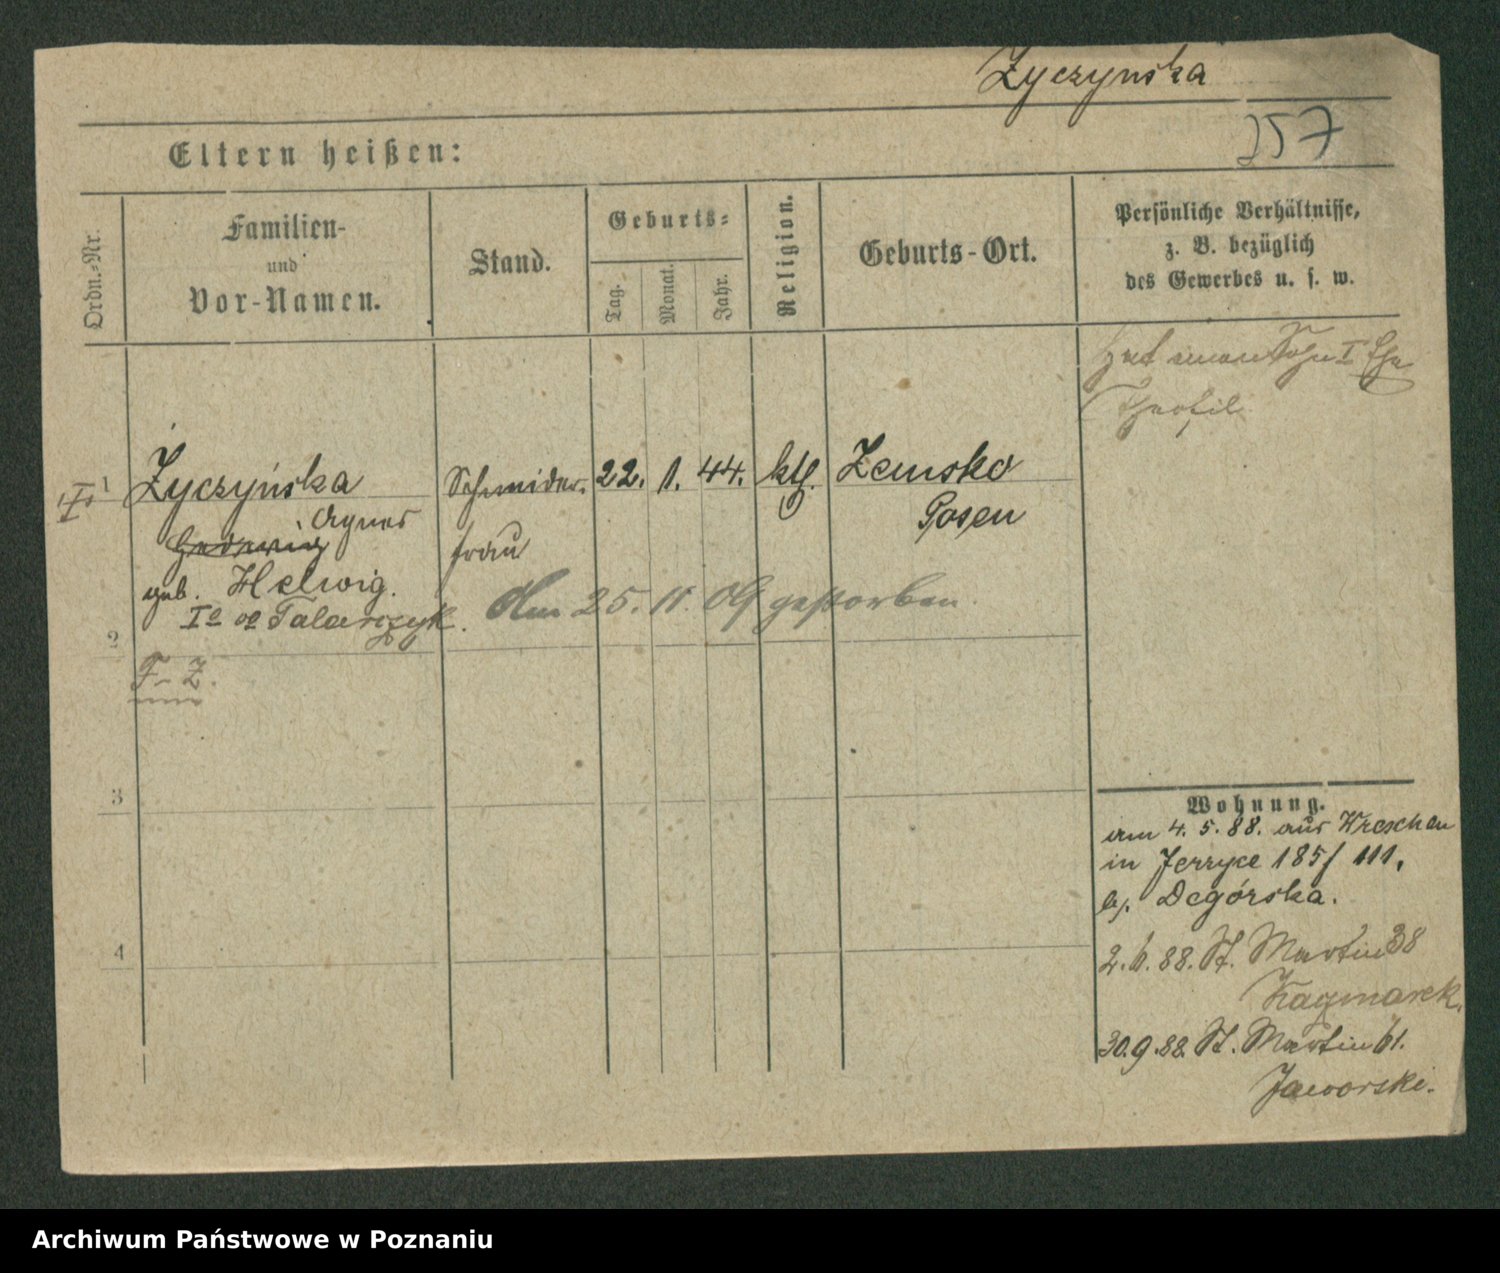 Zyczynska
257
Eltern heißen:
Ordn.-Nr.
Familien-
und
Vor-Namen.
Stand.
Geburts-
Tag.
Monat.
Jahr.
Religion.
Geburts-Ort.
Persönliche Verhältnisse,
z. B. bezüglich
des Gewerbes u. s. w.
Hat einen Sohn I Ehe
Theofil
1 Życzyńska Schmider- 22. 1. 44. ktl. Zemsko
Agnes Posen
Hedwig frau
geb. Helwig.
Am 25. 11. 04 gestorben.
Ie oo Talarczyk.
2
F. Z.
3
4
Wohnung.
am 4. 5. 88. aus Wreschen
in Jerzyce 185/111.
b/. Degórska.
2. 6. 88. St. Martin 38
Kaczmarek.
30.9.88. St. Martin 61.
Jaworski.
Archiwum Państwowe w Poznaniu